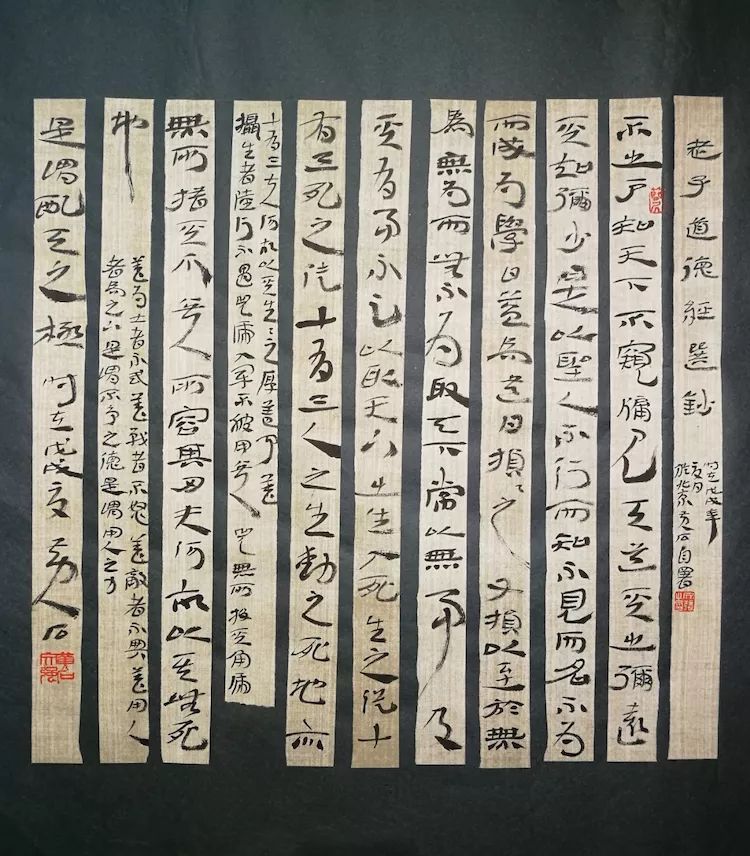 老子道德經選鈔
時在戊戌年
於北京黄石自署
不出戶知天下不窺牖見天道其出彌遠
其知彌少是以聖人不行而知不見而名不為
而成為學日益為道日損〻之又損以至於無
為無為而無不為取天下常以無事及
其有事不足以取天下出生入死生之徒十
有三死之徒十有三人之生動之死地亦
十有三夫何故以其生〻之厚蓋聞善
攝生者陸行不遇兕虎入軍不被甲兵兕無所投其角虎
無所措其爪兵無所容其刃夫何故以其無死
地
善為士者不武善戰者不怒善敵者不與善用人
者為之下是謂不爭之德是謂用人之力
是謂配天之極時在戊戌夏